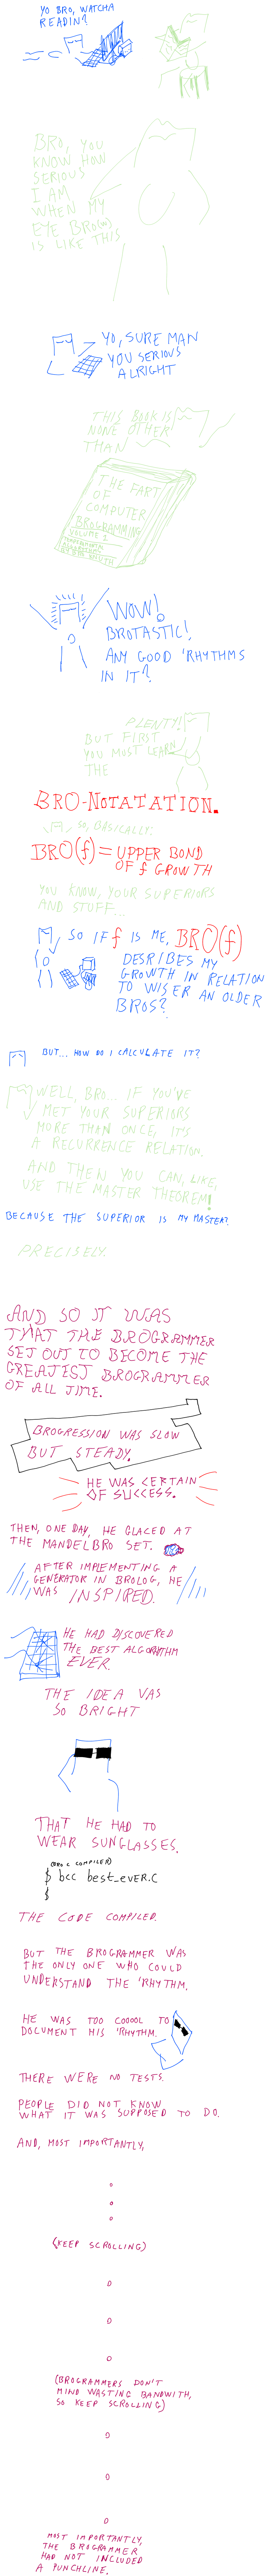 YO BRO, WATCHA
READIN?
BRO, YOU
KNOW HOW
SERIOUS
I AM
WHEN MY
EYE BRO(W)
IS LIKE THIS
YO, SURE MAN
YOU SERIOUS
ALRIGHT
THIS BOOK IS
NONE OTHER
THAN
THE FART
OF
COMPUTER
BROGRAMMING
VOLUME 1
WOW!
BROTASTIC!
ANY GOOD 'RHYTHMS
IN IT?
PLENTY!
BUT FIRST
YOU MOST LEARN
THE
BRO-NOTATATION.
SO, BASICALLY:
BRO(f) = UPPER BOND
OF f GROWTH
YOU KNOW, YOUR SUPERIORS
AND STUFF...
SO IF f IS ME, BRO(f)
DESRIBES MY
GROWTH IN RELATION
TO WISER AN OLDER
BROS?
BUT... HOW DO I CALCULATE IT?
WELL, BRO... IF YOU'VE
MET YOUR SUPERIORS
MORE THAN ONCE, IT'S
A RECURRENCE RELATION.
AND THEN YOU CAN, LIKE,
USE THE MASTER THEOREM!
BECAUSE THE SUPERIOR IS MY MASTER?
PRECISELY.
AND SO IT WAS
THAT THE BROGRAMMER
SET OUT TO BECOME THE
GREATEST BROGRAMMER
OF ALL TIME.
BROGRESSION WAS SLOW
BUT STEADY.
HE WAS CERTAIN
OF SUCCESS.
THEN, ONE DAY, HE GLACED AT
THE MANDELBRO SET.
AFTER IMPLEMENTING A
GENERATOR IN BROLOG, HE
WAS INSPIRED.
HE HAD DISCOVERED
THE BEST ALGORITHM
EVER.
THE IDEA VAS
SO BRIGHT
THAT HE HAD TO
WEAR SUNGLASSES.
(BRO C COMPILER)
$ bcc best_ever.c
$
THE CODE COMPILED.
BUT THE BROGRAMMER WAS
THE ONLY ONE WHO COULD
UNDERSTAND THE 'RHYTHM.
HE WAS TOO COOOOL TO
DOCUMENT HIS 'RHYTHM.
THERE WERE NO TESTS.
PEOPLE DID NOT KNOW
WHAT IT WAS SUPPOSED TO DO.
AND, MOST IMPORTANTLY,
(KEEP SCROLLING)
(BROGRAMMERS DON'T
MIND WASTING BANDWITH,
SO KEEP SCROLLING)
MOST IMPORTANTLY,
THE BROGRAMMER
HAD NOT INCLUDED
A PUNCHLINE.